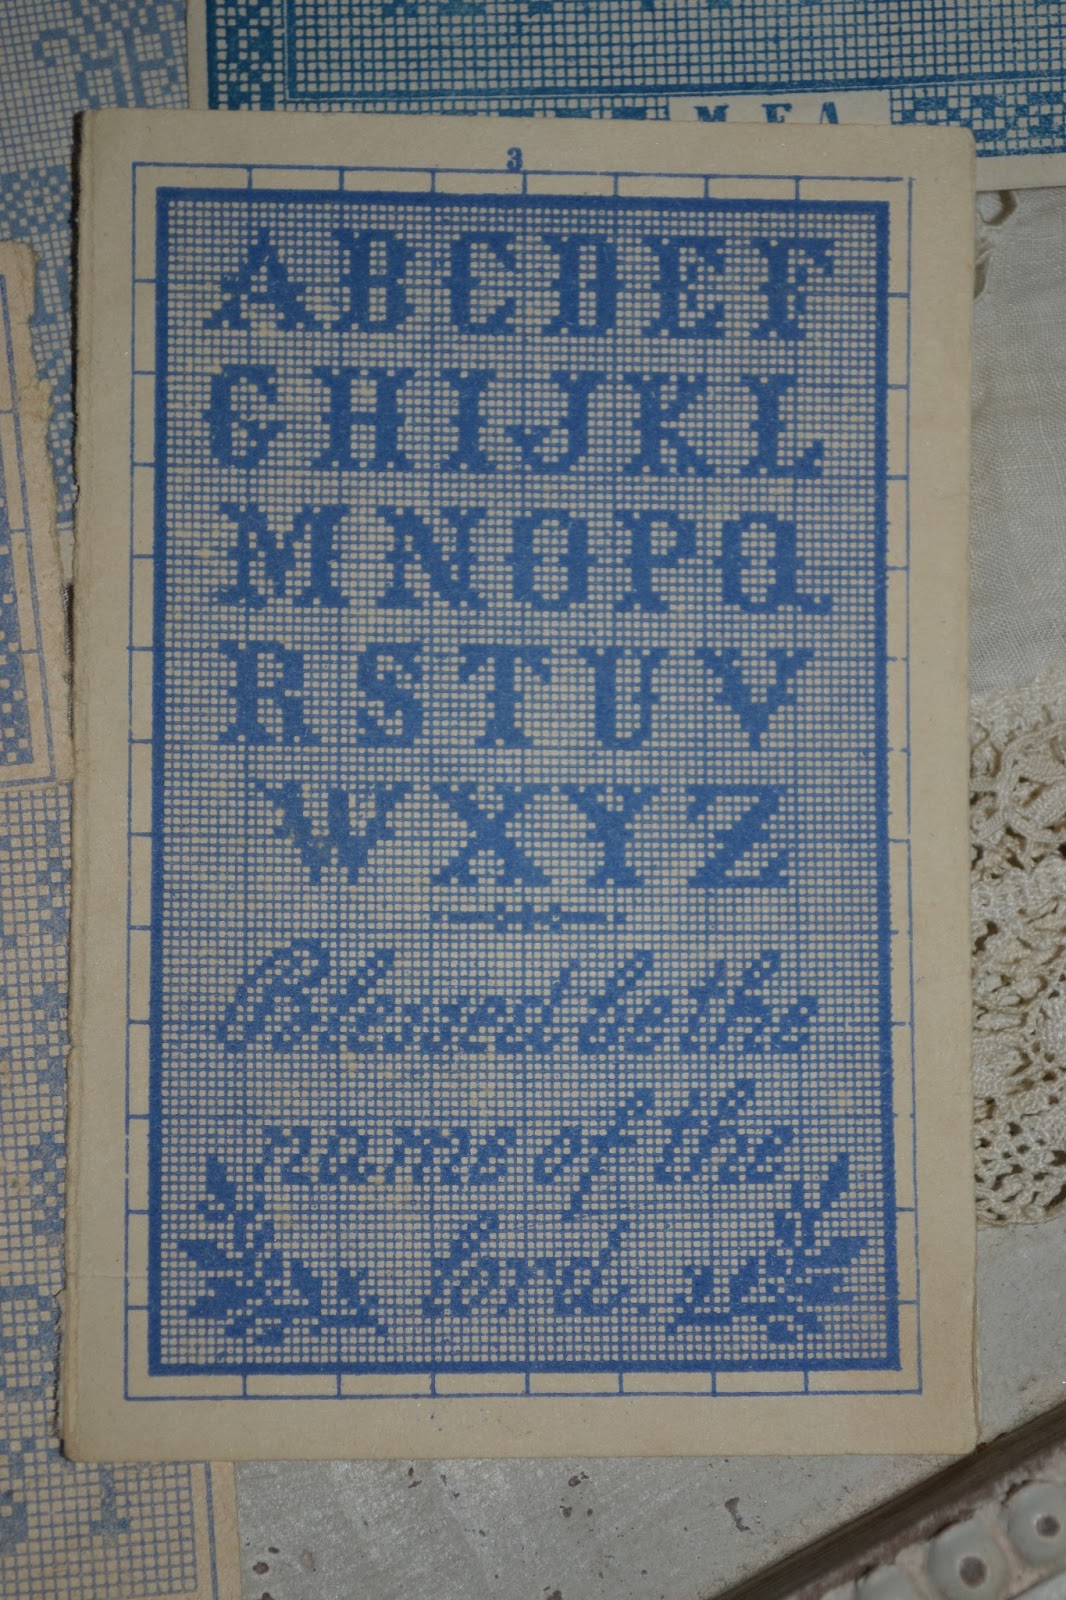 M.F.A
3
ABCDEF
GHIJKL
MNOPQ
RSTUV
WXYZ
Blessed be the
name of the
Lord.